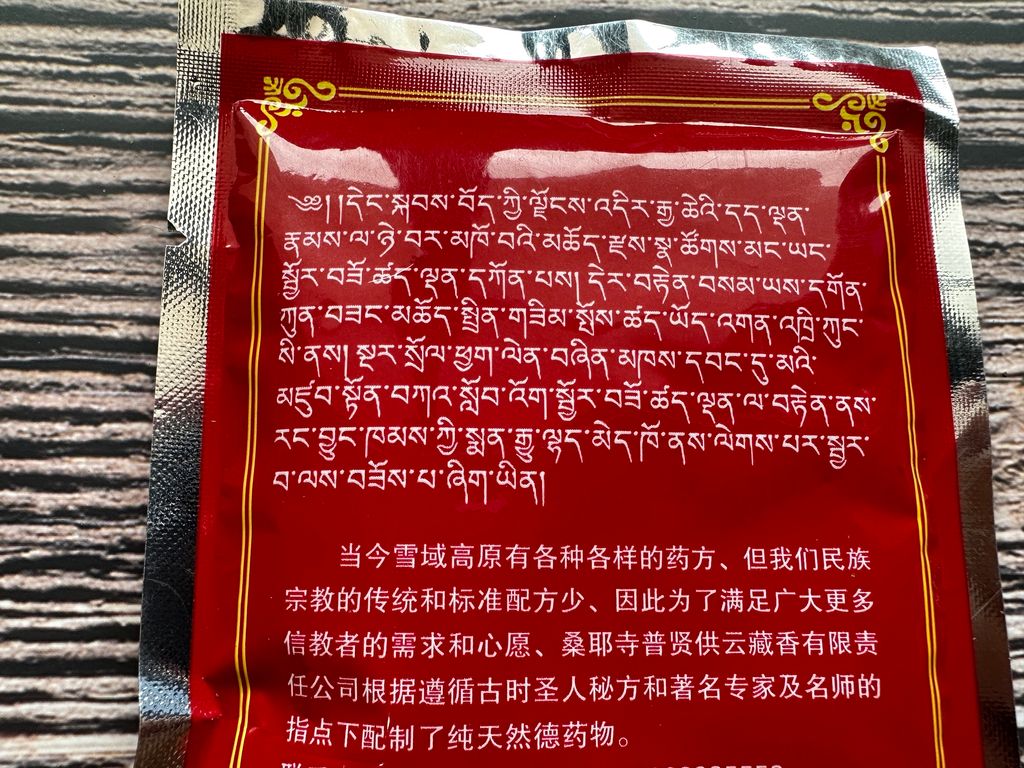 ༄༅།།དེང་སྐབས་བོད་ཀྱི་ལྗོངས་འདིར་རྒྱ་ཆེའི་དད་ལྡན་
རྣམས་ལ་ཉེ་བར་མཁོ་བའི་མཆོད་རྫས་སྣ་ཚོགས་མང་ཡང་
སྦྱོར་བཟོ་ཚད་ལྡན་དཀོན་པས། དེར་བརྟེན་བསམ་ཡས་དགོན་
ཀུན་བཟང་མཆོད་སྤྲིན་གཟིམ་སྤོས་ཚད་ཡོད་འགན་འཁྲི་ཀུང་
སི་ནས། སྔར་སྲོལ་ཕྱག་ལེན་བཞིན་མཁས་དབང་དུ་མའི་
མཛུབ་སྟོན་བཀའ་སློབ་འོག་སྦྱོར་བཟོ་ཚད་ལྡན་ལ་བརྟེན་ནས་
རང་བྱུང་ཁམས་ཀྱི་སྨན་རྒྱུ་ལྷད་མེད་ཁོ་ནས་ལེགས་པར་སྦྱར་
བ་ལས་བཟོས་པ་ཞིག་ཡིན།
当今雪域高原有各种各样的药方、但我们民族
宗教的传统和标准配方少、因此为了满足广大更多
信教者的需求和心愿、桑耶寺普贤供云藏香有限责
任公司根据遵循古时圣人秘方和著名专家及名师的
指点下配制了纯天然德药物。